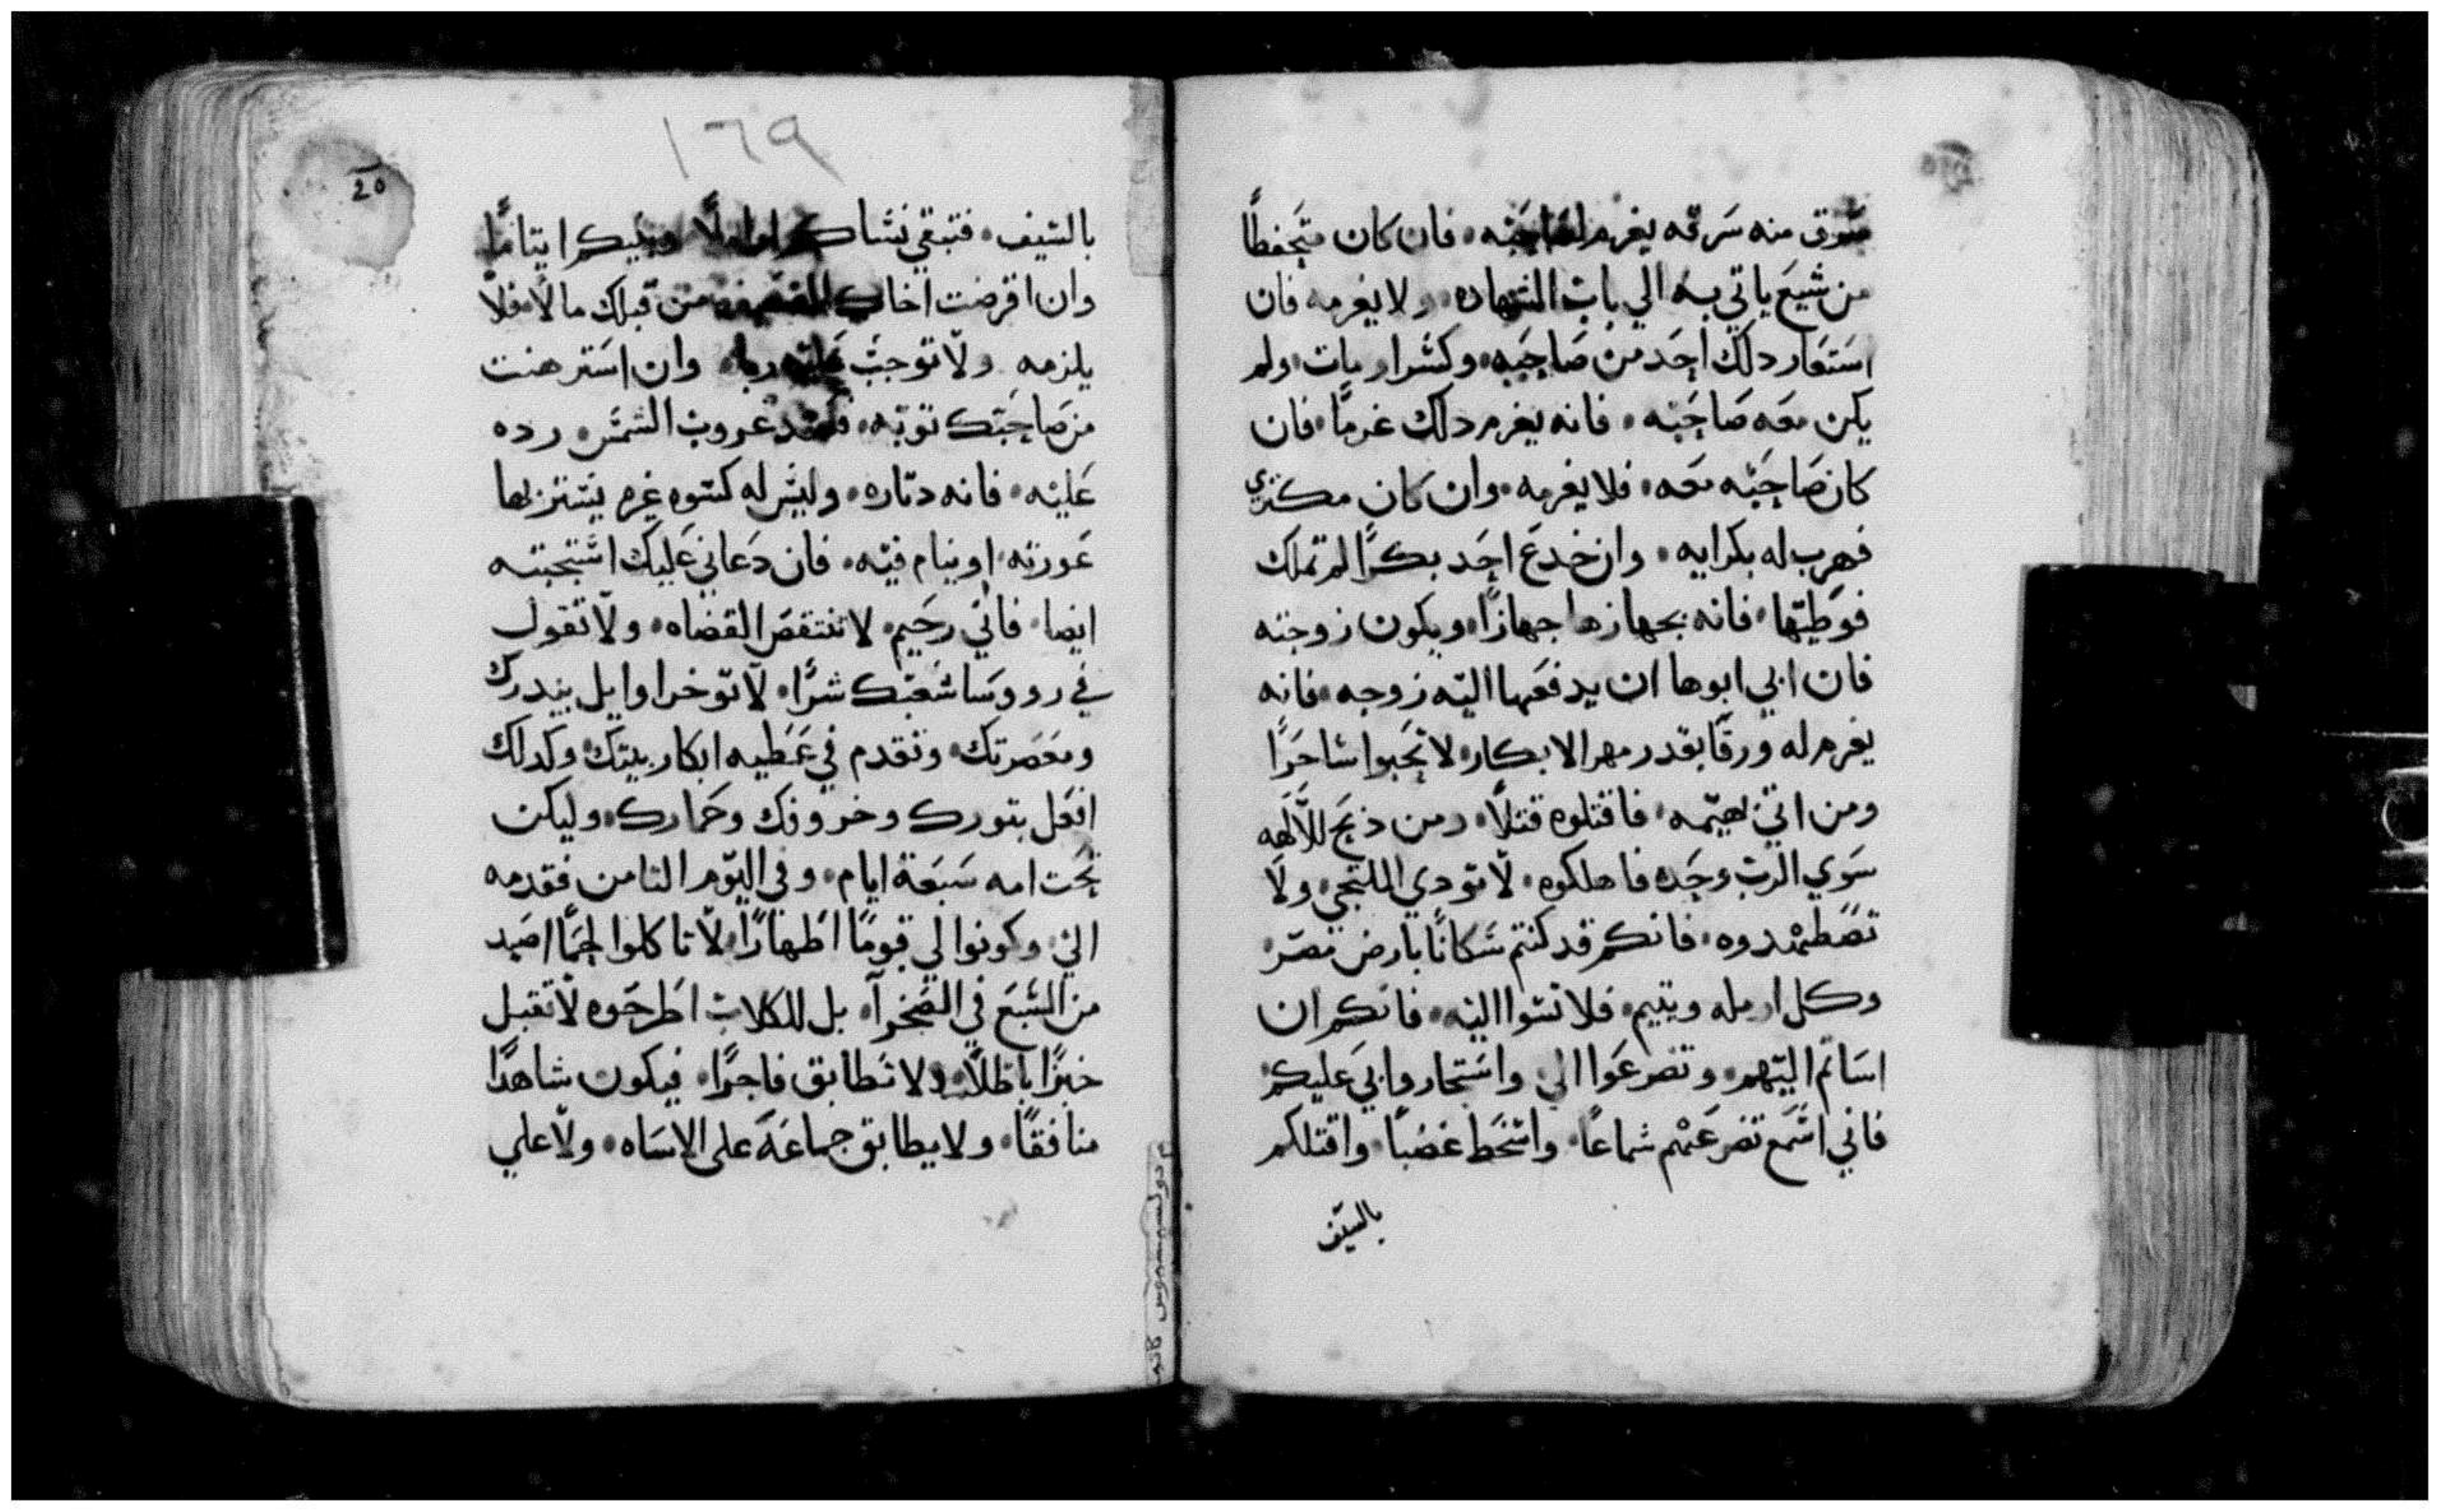 سرق منه سرقه يغرم لصاحبه فان كان متحفظًا
من سبع ياتي به الي باب الشهاده ولا يغرمه فان
استعار دلك احد من صاحبه وكسر او مات ولم
يكن معه صاحبه فانه يغرم دلك غرمًا فان
كان صاحبه معه فلا يغرمه وان كان مكتري
فهرب له بكرايه وان خدع احد بكرًا لم تملك
فوطيها فانه بجهازها جهازًا ويكون زوجته
فان ابي ابوها ان يدفعها اليه زوجه فانه
يغرم له ورقًا بقدر مهر الابكار لا تحبوا ساحرًا
ومن اتي بهيمه فاقتلوه قتلًا ومن ذبح للالهه
سوي الرب وحده فاهلكوه لا تودي الملتجي ولا
تضطهدوه فانكم قد كنتم سكانًا بارض مصر
وكل ارمله ويتيم فلا تسوا اليه فانكم ان
اساتم اليهم وتضرعوا الي واستجاروا بي عليكم
فاني اسمع تضرعهم سماعًا واسخط غضبًا واقتلكم
بالسيف
١٦٩
20
بالسيف فتبقي نساكم اراملًا وبنيكم ايتامًا
وان اقرضت اخاك من قبلك مالًا فلا
يلزمه ولا توجب عليه ربا وان استرهنت
من صاحبك توبه فعند غروب الشمس رده
عليه فانه دتاره وليس له كسوه غيره يستتر بها
عورته او ينام فيه فان دعاني عليك استجبته
ايضا فاني رحيم لا تنتقص القضاه ولا تقول
في رووسا شعبك شرًا لا توخر اوايل بيدرك
ومعصرتك وتقدم في عطيه ابكار بيتك وكدلك
افعل بتورك وخروفك وحمارك وليكن
تحت امه سبعة ايام وفي اليوم التامن فقدمه
الي وكونوا لي قومًا اطهارًا لا تاكلوا لحمًا اصيد
من السبع في الصحرا بل للكلاب اطرحوه لا تقبل
خبرًا باطلًا ولا تطابق فاجرًا فيكون شاهدًا
منافقًا ولا يطابق جماعة على الاساه ولا علي